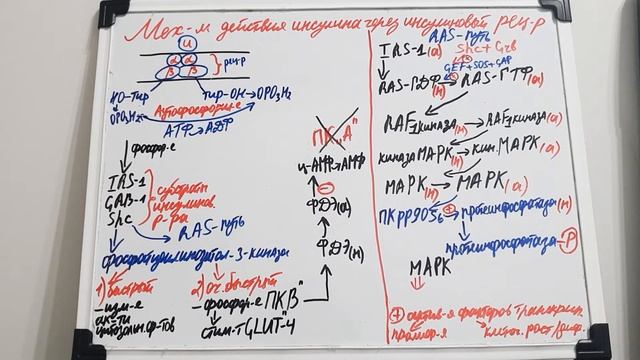 Мех-м действия инсулина через инсулиновый рец-р
И
α α
β β
рец-р
HO-Тир
тир-OH→OPO₃H₂
OPO₃H₂
Аутофосфорил-е
АТФ→АДФ
фосфор-е
IRS-1
GAB-1
Shc
субстраты
инсулинов.
р-ра
RAS-путь
фосфатидилинозитол-3-киназа
1) быстрый
-изм-е
ак-ти
цитозольн. ф-тов
2) оч. быстрый
-фосфор-е ПКВ"
-стим-т GLUT-4
ПК„А"
ц-АМФ→АМФ
⊖
ФДЭ(а)
ФДЭ(н)
RAS-путь
IRS-1(а)
Shc + Grb
GEF+SOS+GAP
RAS-ГДФ(н) → RAS-ГТФ(а)
RAF₁ киназа(н) → RAF₁ киназа(а)
киназа МАРК(н) → кин. МАРК(а)
МАРК(н) → МАРК(а)
ПКрр90S₆ ⊕ протеинфосфотаза(н)
протеинфосфотаза-P
МАРК
⊕ актив-я факторов транскрип.
клеточ. рост/диф.